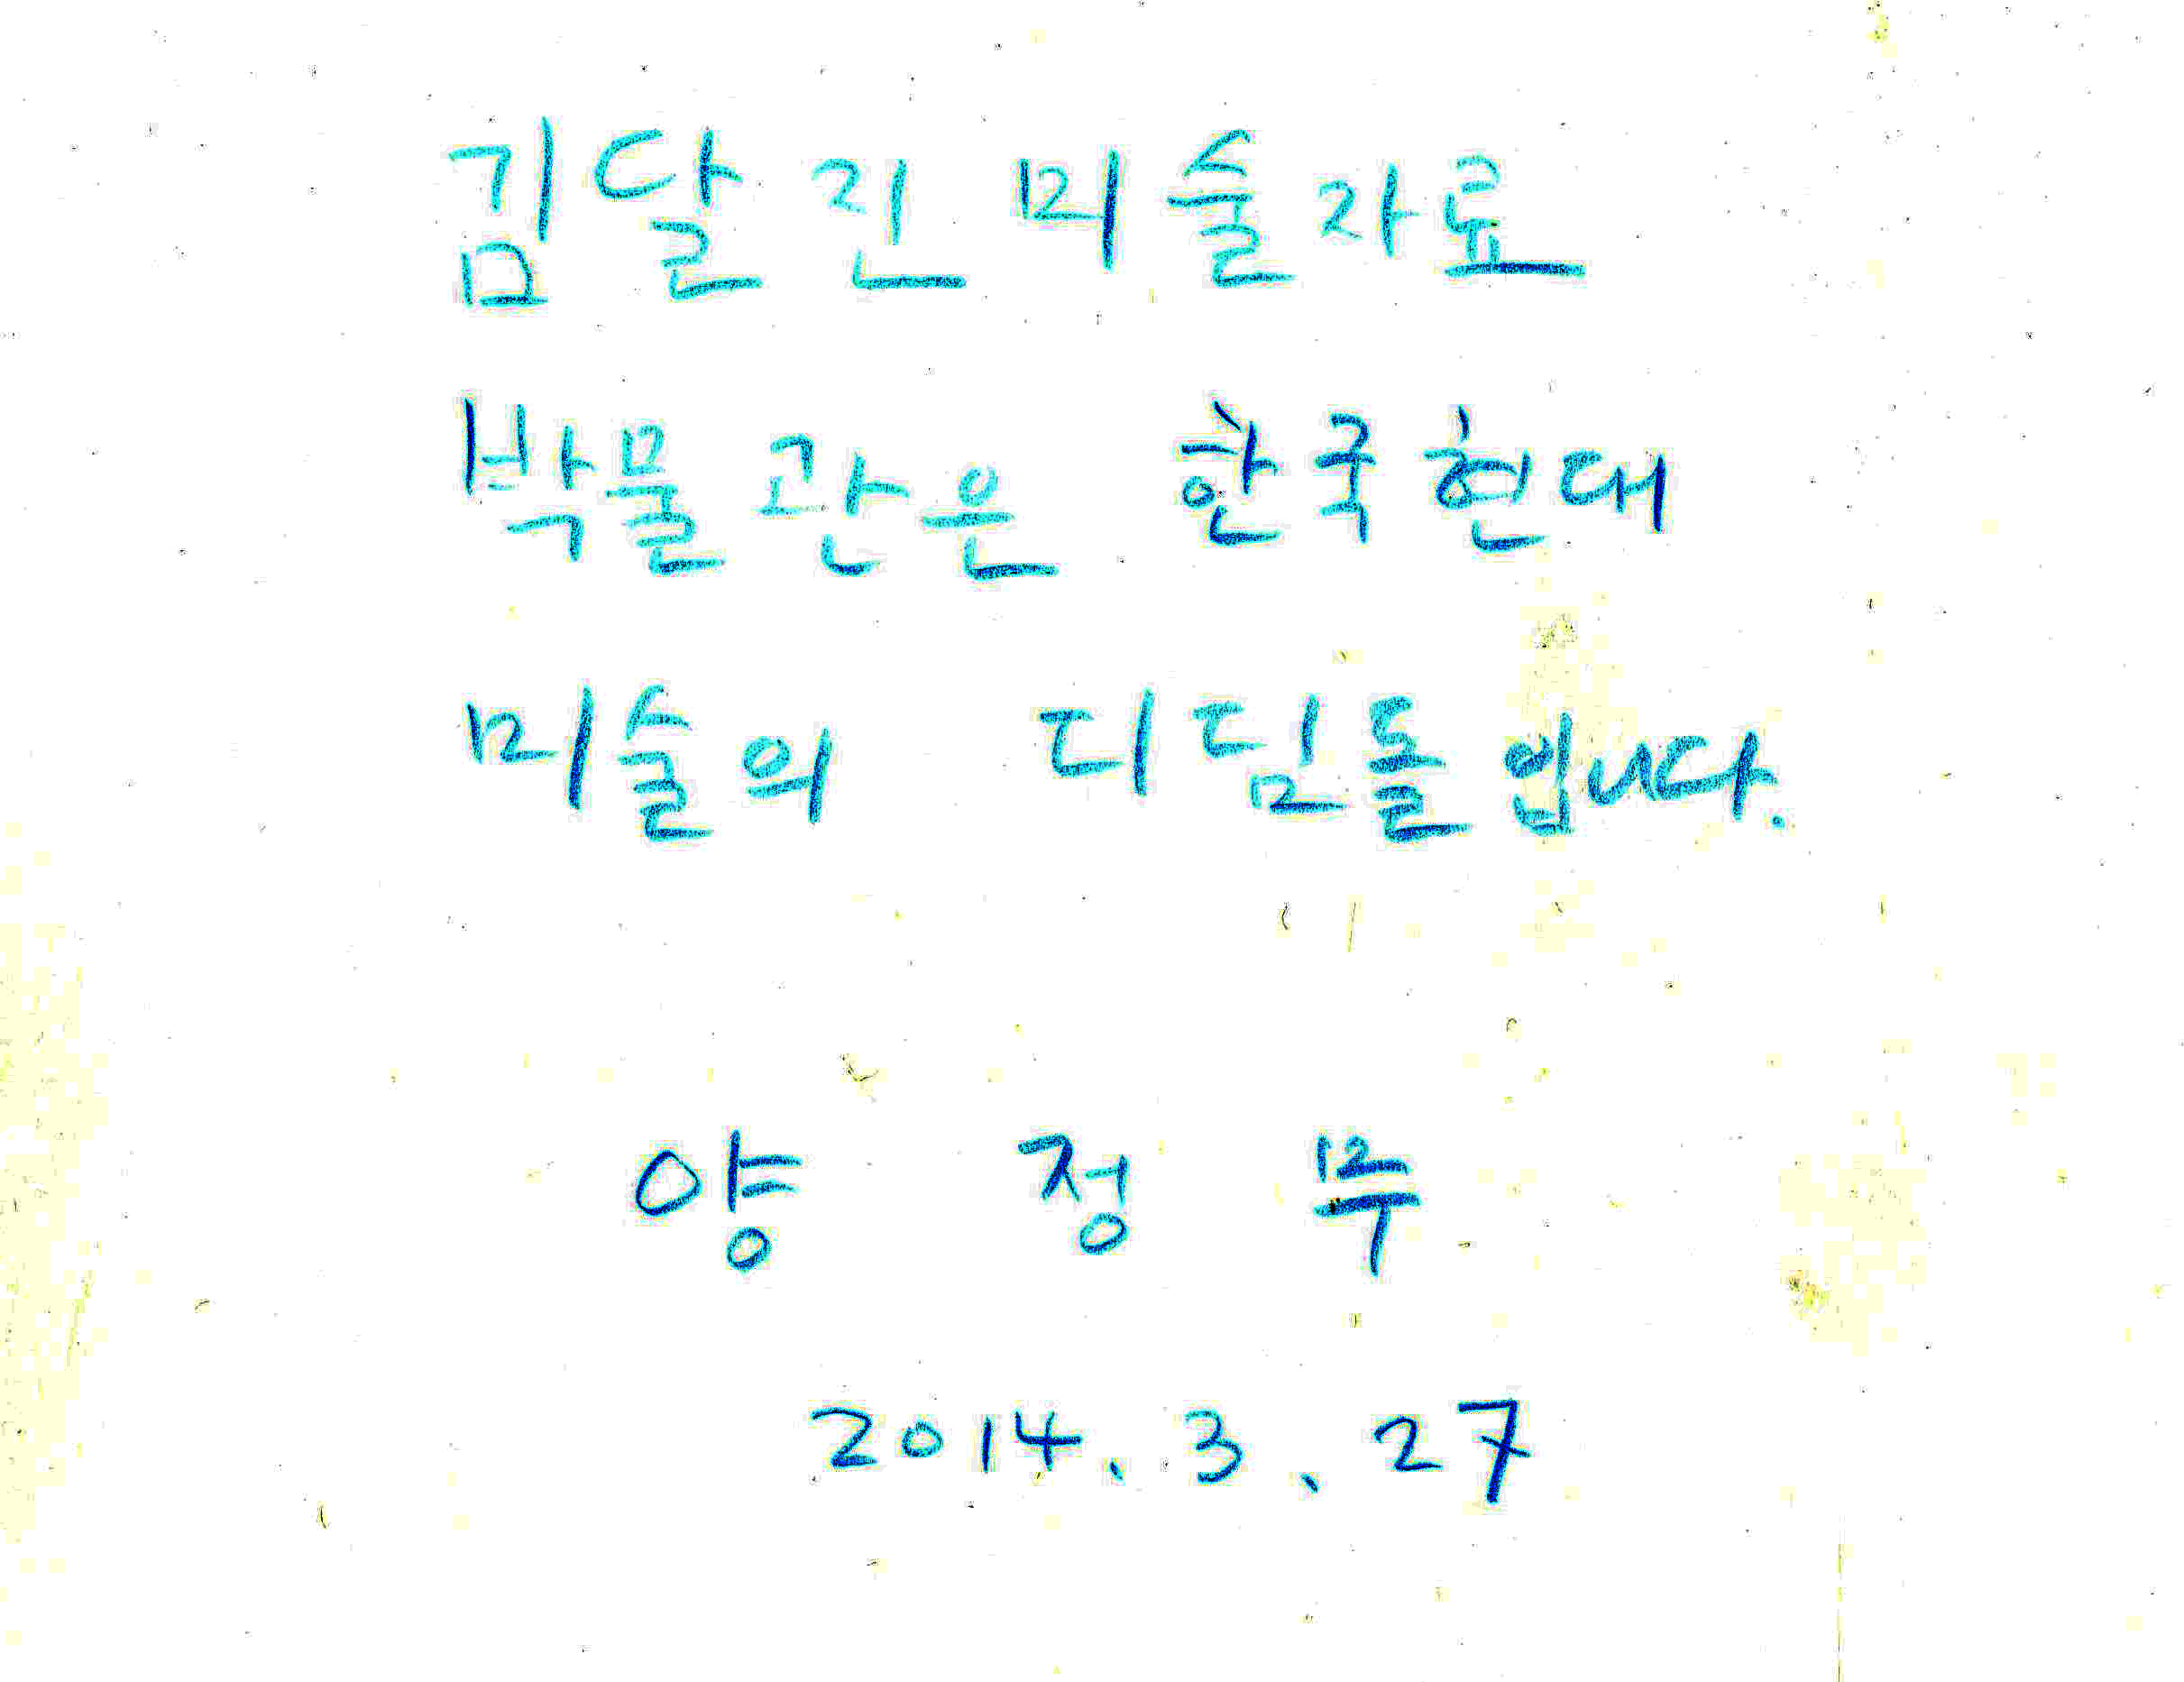 김달진미술자료
박물관은 한국현대
미술의 디딤돌입니다.
양 정 무
2014. 3. 27